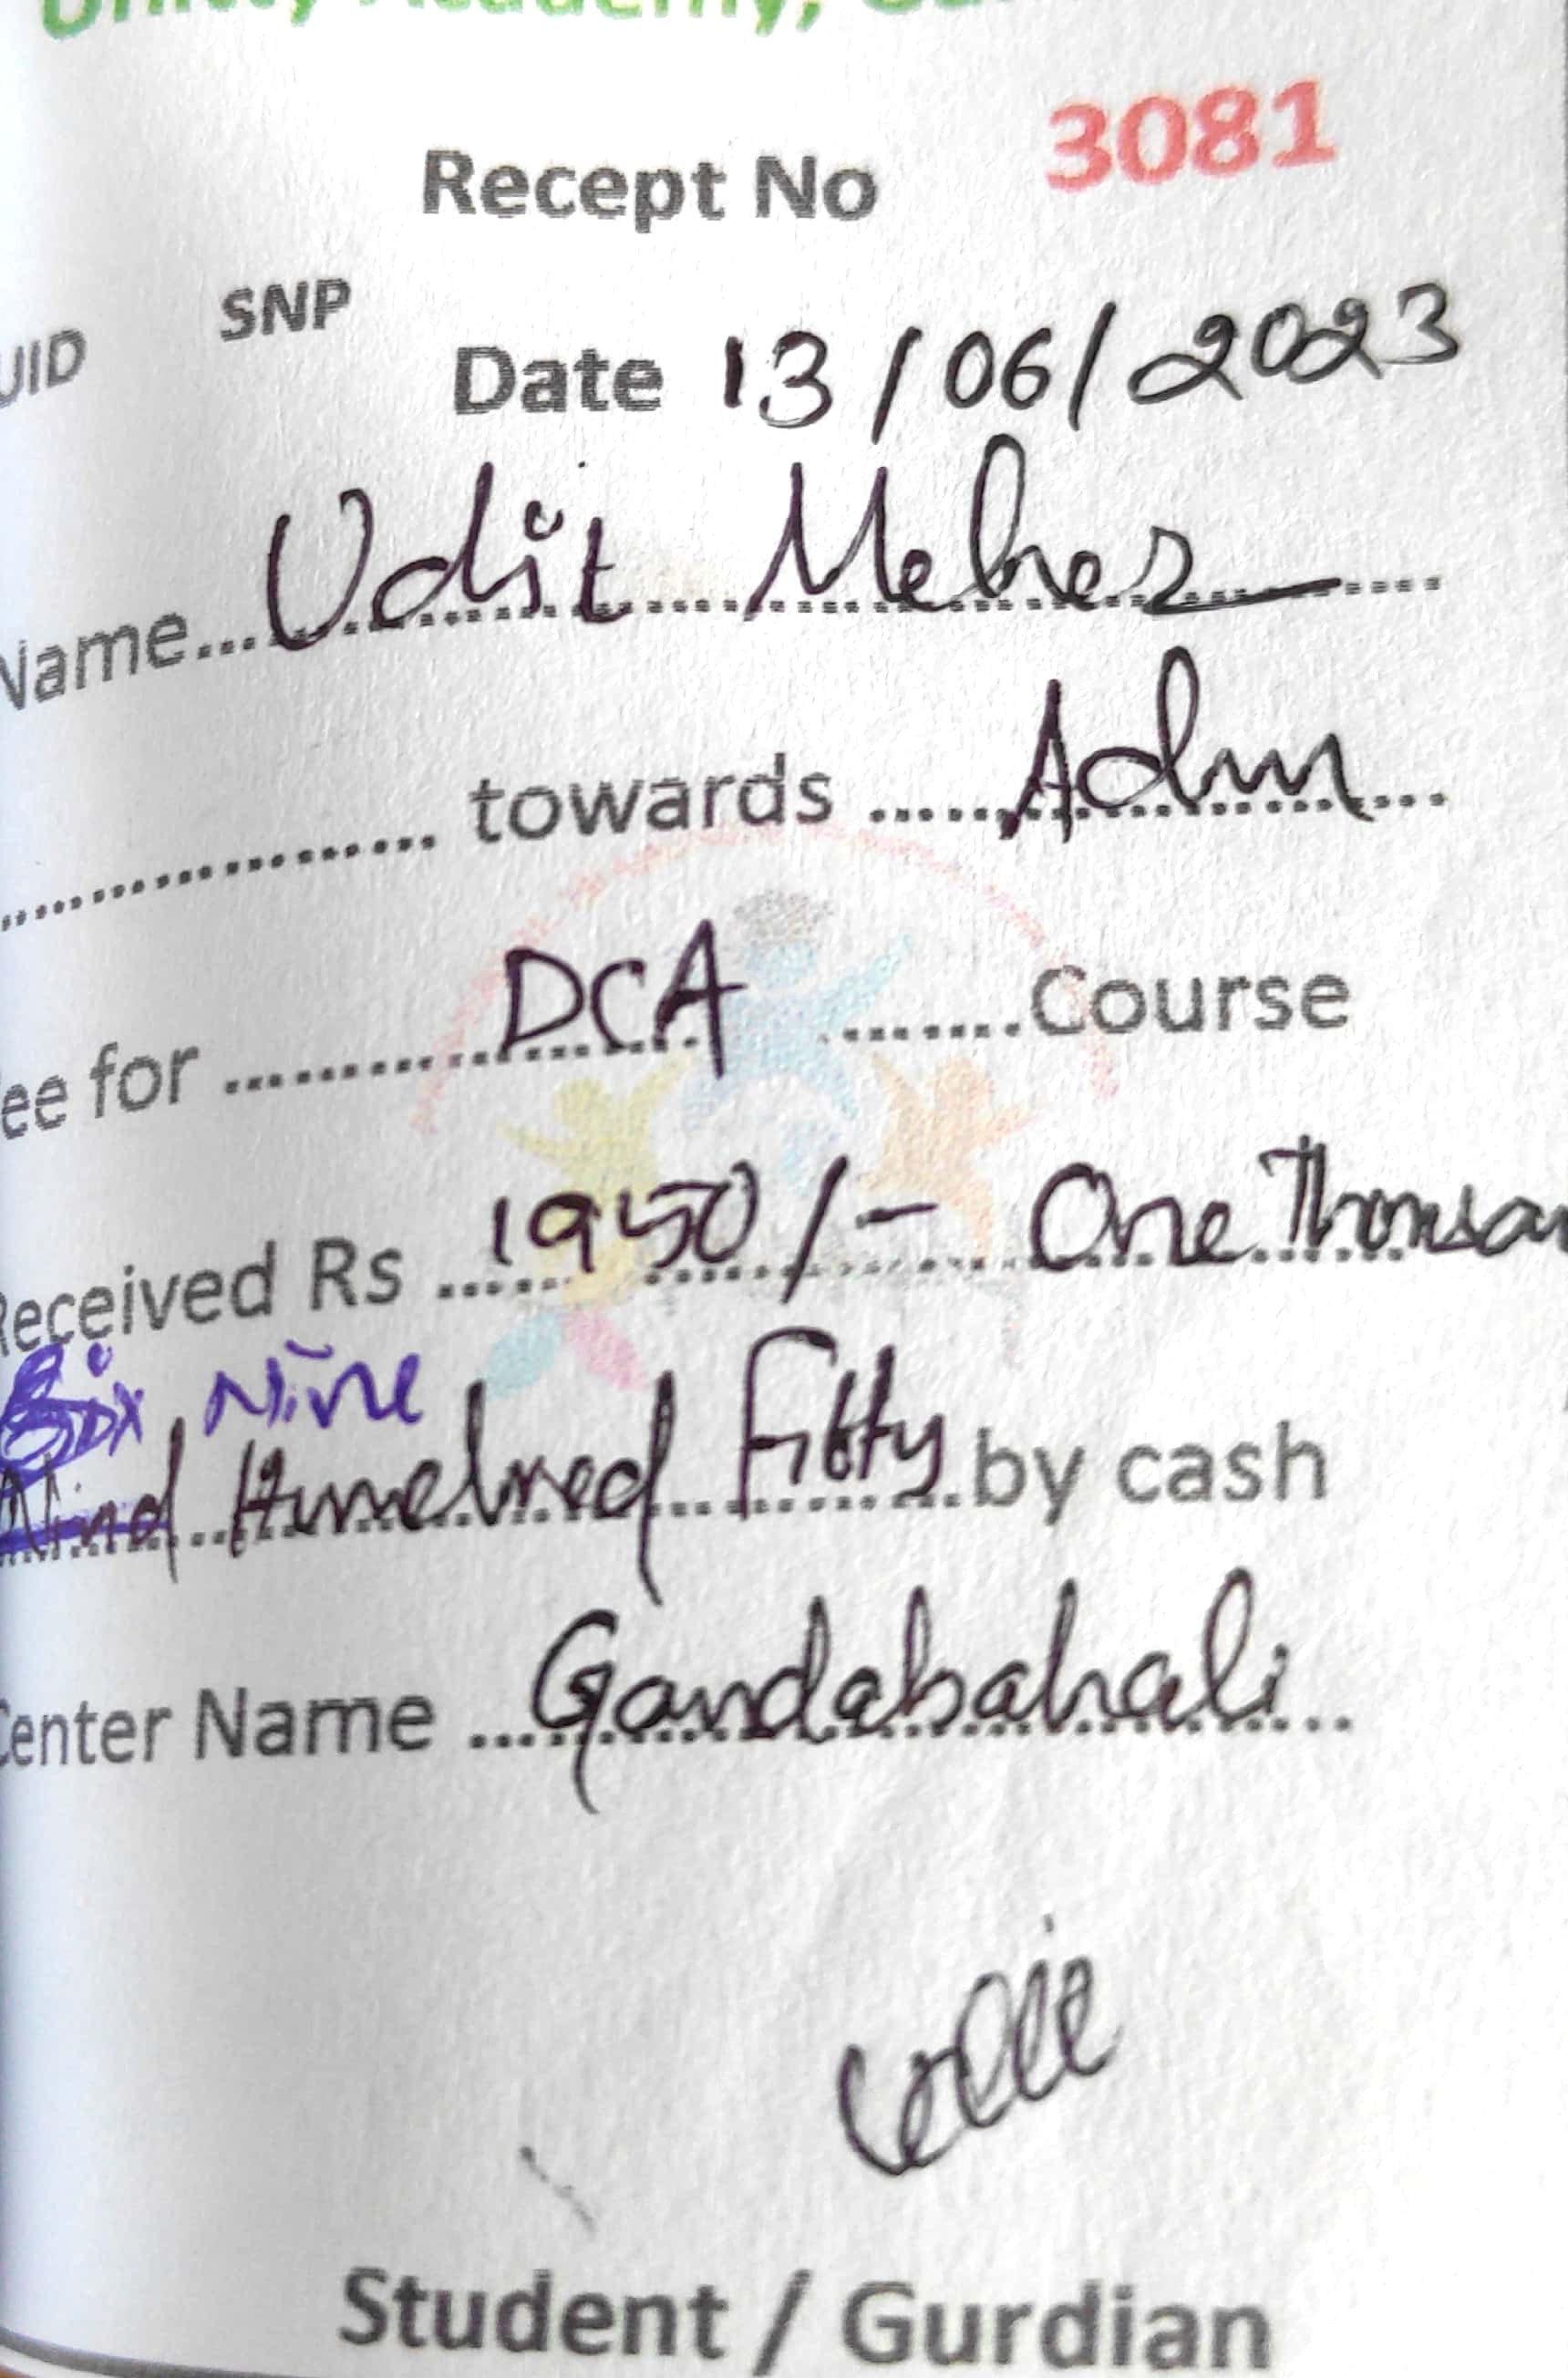 Academy,
Recept No 3081
UID SNP
Date 13/06/2023
Name... Udit Meher
towards Adm
ee for DCA Course
Received Rs 1950/- One Thousan
Six Nine
Hundred Fifty by cash
Center Name Gandabahali
Student / Gurdian